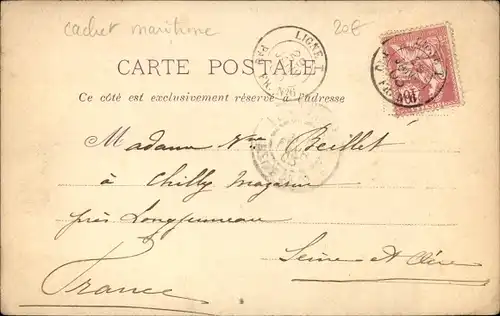 cachet maritime
20€
LIGNE T
CARTE POSTALE
Ce côté est exclusivement réservé à l'adresse
Madame Vve Beillet
à Chilly Mazarin
près Longjumeau
Seine et Oise
France